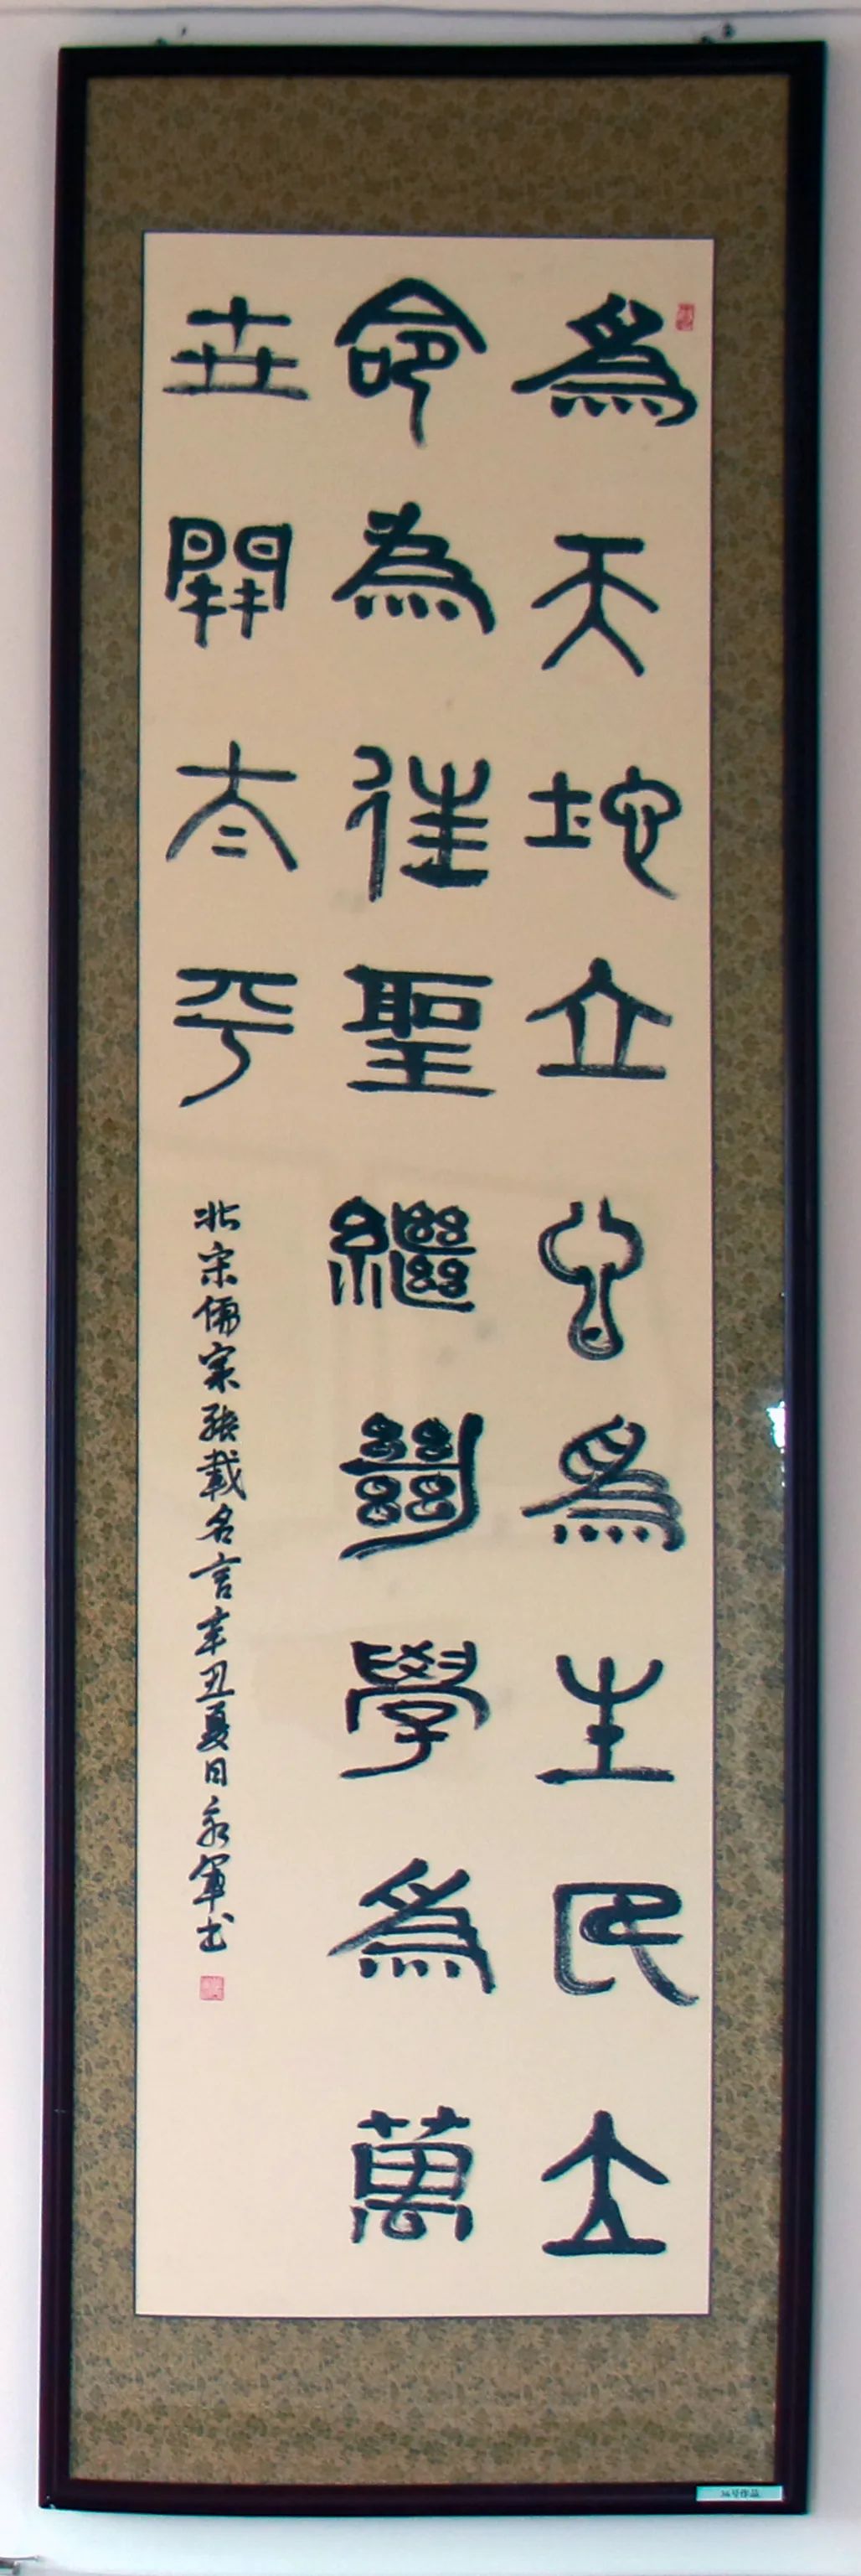 為天地立心為生民立
命為往聖繼𢇍學為萬
世開太平
北宋儒宗張載名言辛丑夏日永軍書
36号作品